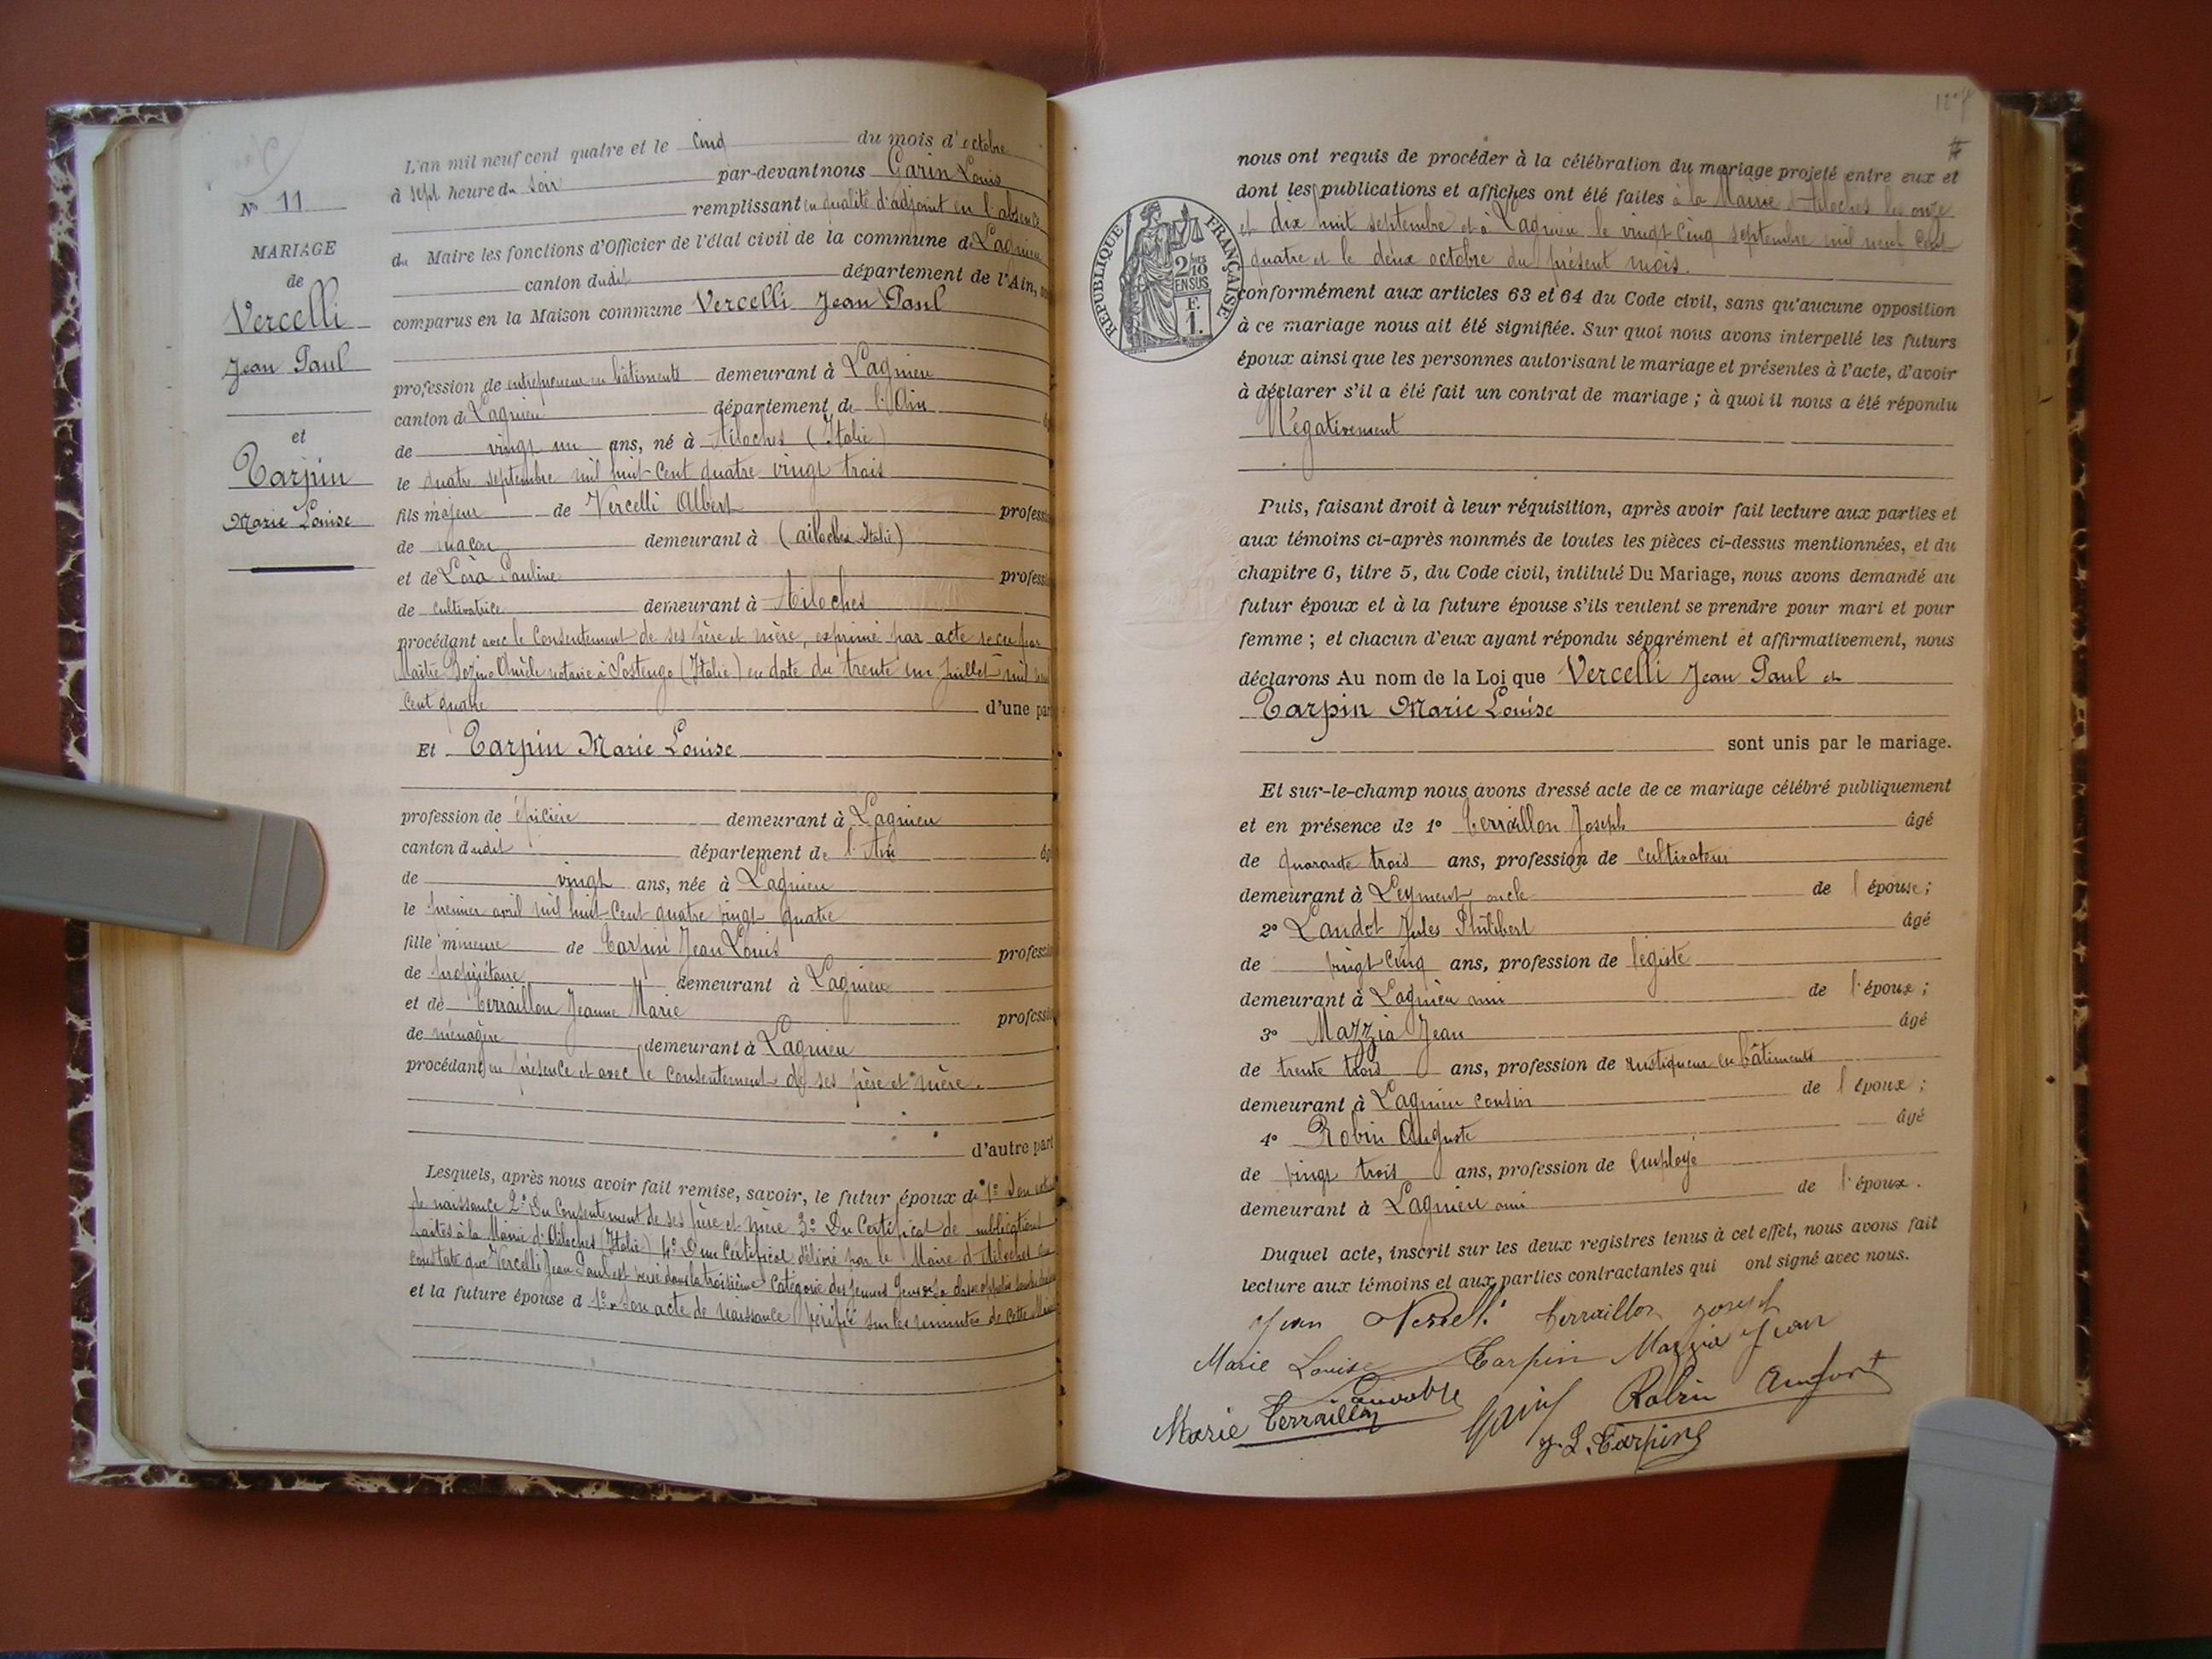 N° 11
MARIAGE
de
Vercelli
Jean Paul
et
Tarpin
Marie Louise
L'an mil neuf cent quatre et le cinq du mois d'octobre
à sept heure du soir par-devant nous Garin Louis
remplissant en qualité d'adjoint en l'absence
du Maire les fonctions d'Officier de l'état civil de la commune de Lagnieu
canton dudit département de l'Ain,
comparus en la Maison commune Vercelli Jean Paul
profession de entrepreneur en bâtiments demeurant à Lagnieu
canton de Lagnieu département de l'Ain
de vingt un ans, né à Ailoches (Italie)
le quatre septembre mil huit cent quatre vingt trois
fils majeur de Vercelli Albert profess
de maçon demeurant à (ailoches Italie)
et de Lora Pauline profess
de cultivatrice demeurant à Ailoches
procédant avec le consentement de ses père et mère, exprimé par acte reçu par
Maître notaire à Sostengo (Italie) en date du trente un juillet mil
cent quatre d'une par
Et Tarpin Marie Louise
profession de épicière demeurant à Lagnieu
canton dudit département de l'Ain
de vingt ans, née à Lagnieu
le premier avril mil huit cent quatre vingt quatre
fille mineure de Tarpin Jean Louis profess
de propriétaire demeurant à Lagnieu
et de Terraillon Jeanne Marie profess
de ménagère demeurant à Lagnieu
procédant en présence et avec le consentement de ses père et mère.
d'autre part
Lesquels, après nous avoir fait remise, savoir, le futur époux de 1° Son acte
de naissance 2° Du Consentement de ses père et mère 3° Du Certificat de publications
faites à la Mairie d'Ailoches (Italie) 4° D'un Certificat délivré par le Maire d'Ailoches
constate que Vercelli Jean Paul est versé dans la troisième Catégorie des jeunes Gens
et la future épouse d 1° Son acte de naissance vérifié sur les minutes de cette
nous ont requis de procéder à la célébration du mariage projeté entre eux et
dont les publications et affiches ont été faites à la Mairie d'Ailoches les onze
et dix huit septembre et à Lagnieu le vingt cinq septembre mil neuf cent
quatre et le deux octobre du présent mois.
REPUBLIQUE FRANÇAISE
2/10
EN SUS
F.
1.
conformément aux articles 63 et 64 du Code civil, sans qu'aucune opposition
à ce mariage nous ait été signifiée. Sur quoi nous avons interpellé les futurs
époux ainsi que les personnes autorisant le mariage et présentes à l'acte, d'avoir
à déclarer s'il a été fait un contrat de mariage ; à quoi il nous a été répondu
Négativement
Puis, faisant droit à leur réquisition, après avoir fait lecture aux parties et
aux témoins ci-après nommés de toutes les pièces ci-dessus mentionnées, et du
chapitre 6, titre 5, du Code civil, intitulé Du Mariage, nous avons demandé au
futur époux et à la future épouse s'ils veulent se prendre pour mari et pour
femme ; et chacun d'eux ayant répondu séparément et affirmativement, nous
déclarons Au nom de la Loi que Vercelli Jean Paul et
Tarpin Marie Louise
sont unis par le mariage.
Et sur-le-champ nous avons dressé acte de ce mariage célébré publiquement
et en présence de 1° Terraillon Joseph âgé
de quarante trois ans, profession de cultivateur
demeurant à Leyment oncle de l'épouse ;
2° Landot Jules Philibert âgé
de vingt cinq ans, profession de légiste
demeurant à Lagnieu ami de l'époux ;
3° Mazzia Jean âgé
de trente trois ans, profession de rustiqueur en bâtiments
demeurant à Lagnieu cousin de l'époux ;
4° Robin Auguste âgé
de vingt trois ans, profession de employé
demeurant à Lagnieu ami de l'époux.
Duquel acte, inscrit sur les deux registres tenus à cet effet, nous avons fait
lecture aux témoins et aux parties contractantes qui ont signé avec nous.
Jean Vercelli Terraillon Joseph
Marie Louise Tarpin Mazzia Jean
Marie Terraillon Garin Robin
J. L. Tarpin